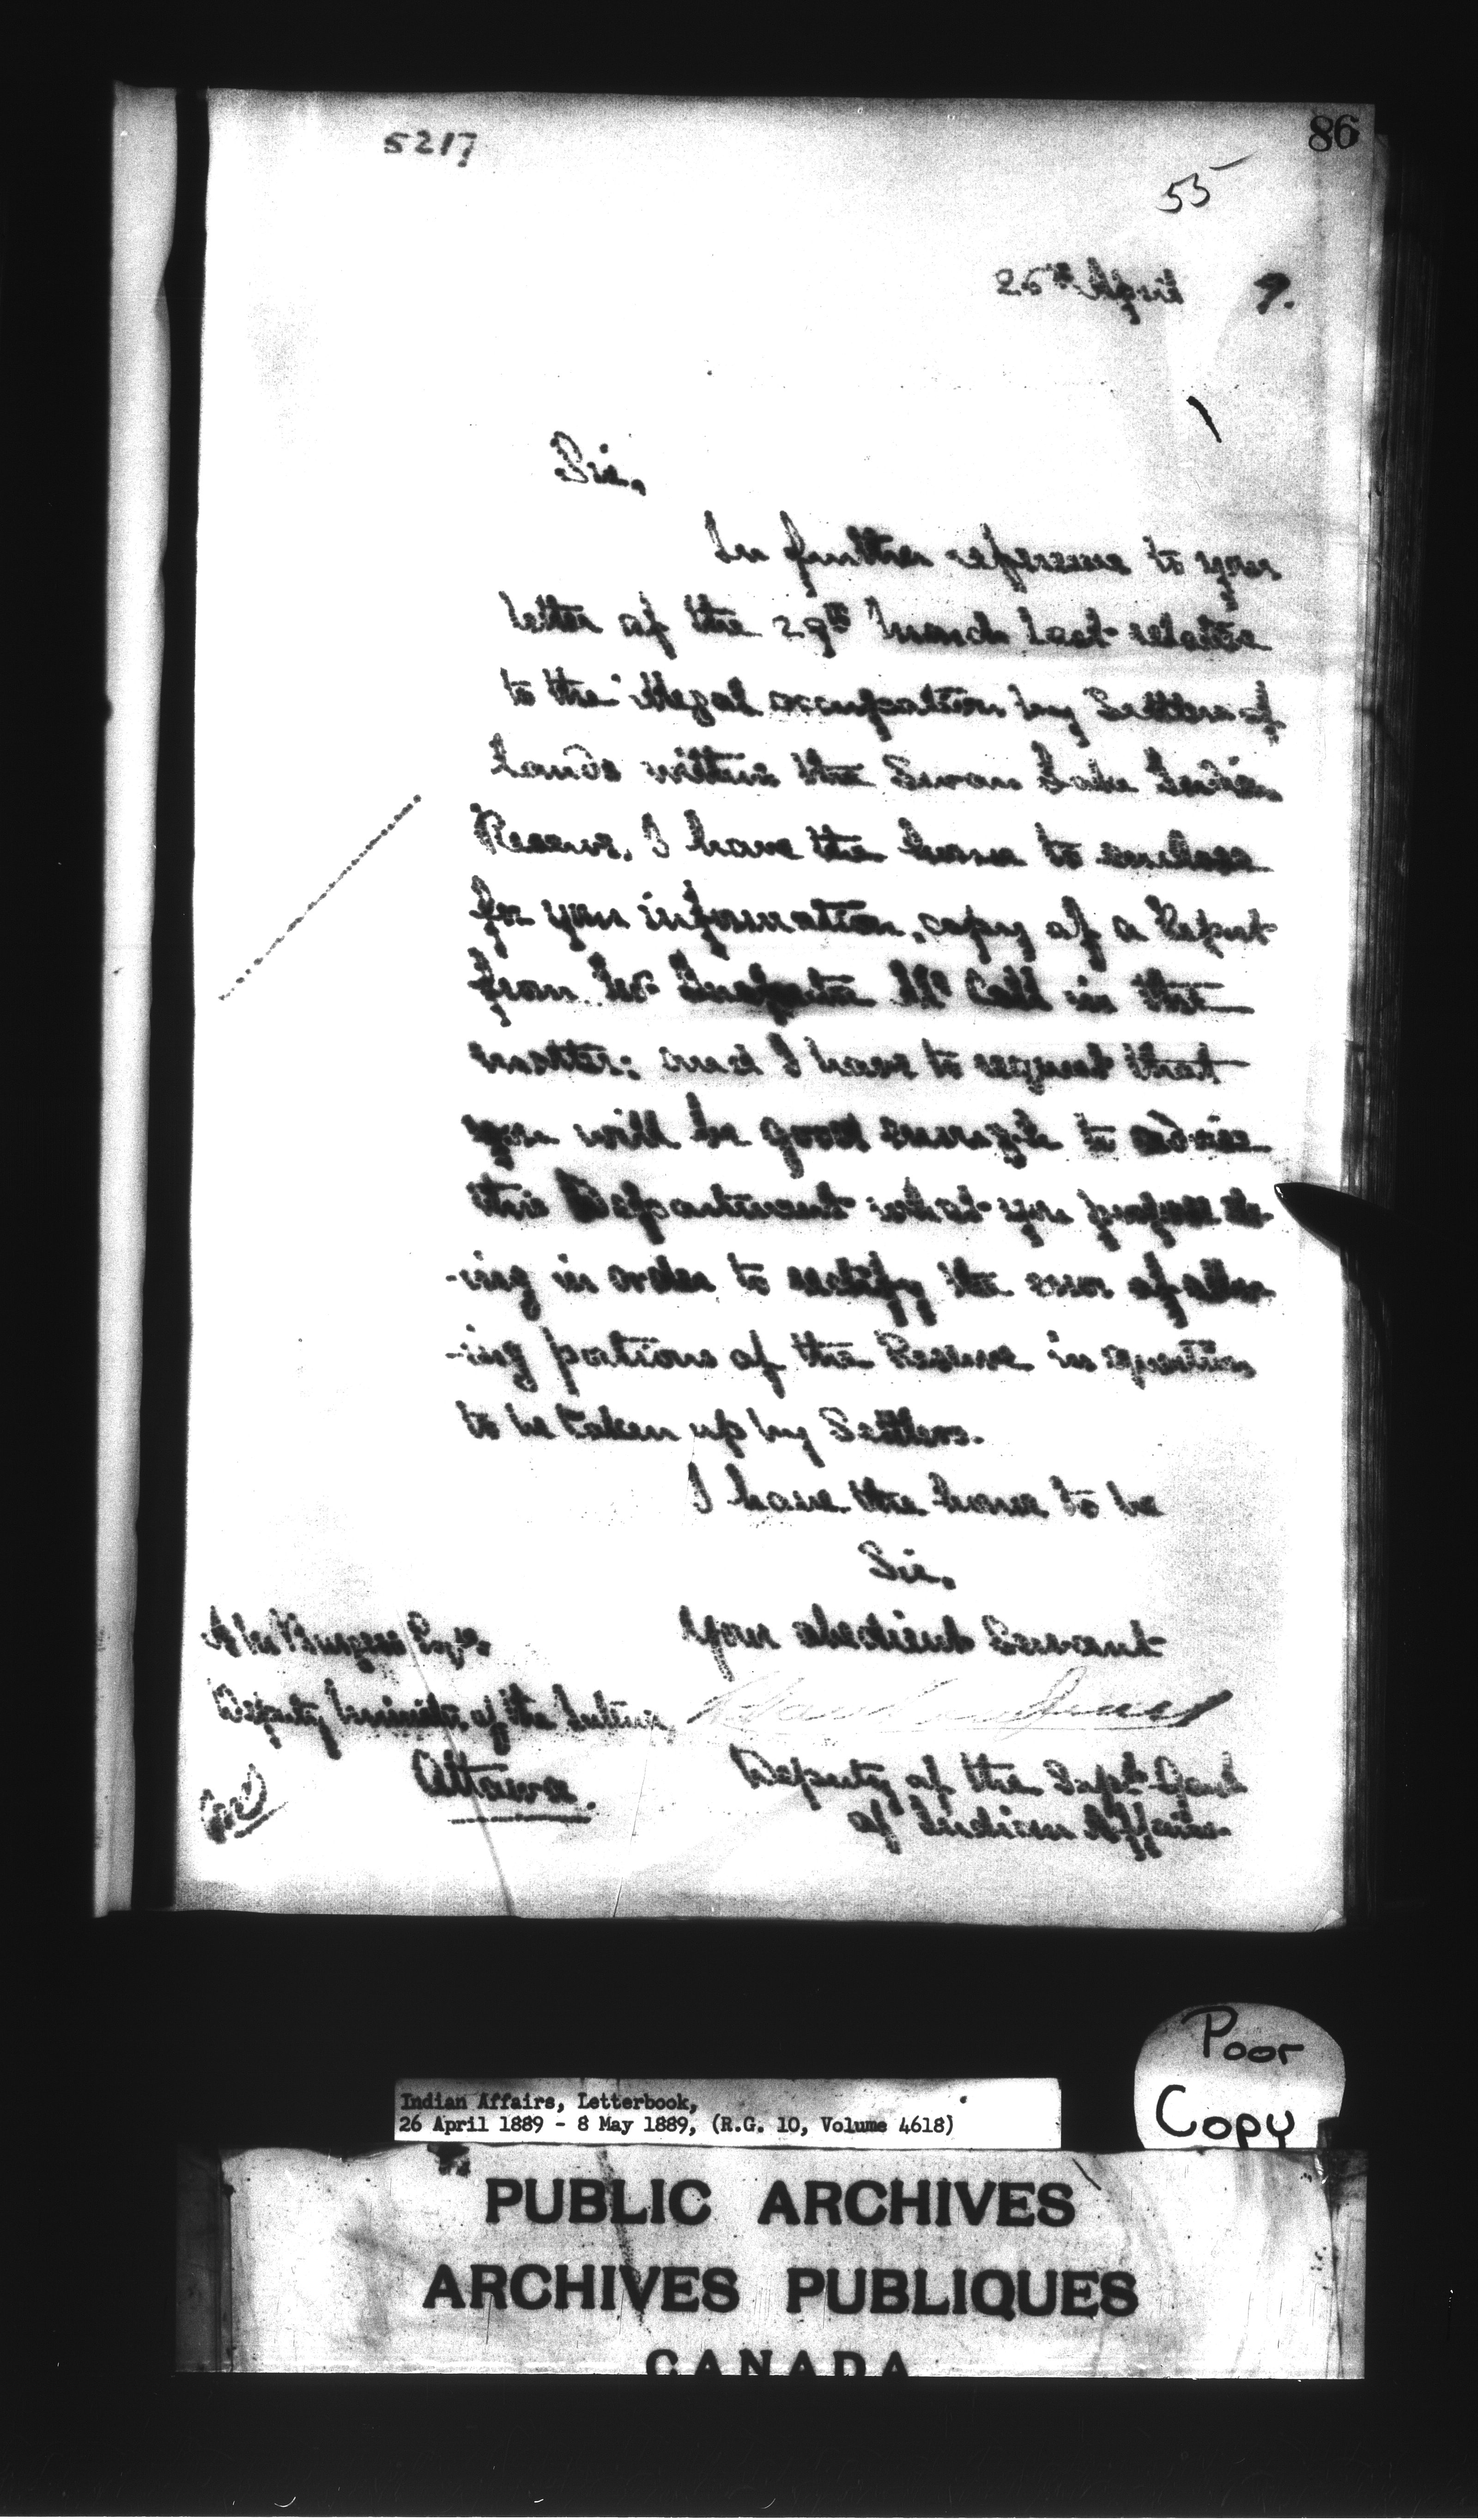 5217
86
55
26th April 9.
Sir,
In further reference to your
letter of the 29th March last relative
to the illegal occupation by Settlers of
Lands within the Swan Lake Indian
Reserve, I have the honor to enclose
for your information, copy of a Report
from Mr Inspector McColl in the
matter: and I have to request that
you will be good enough to advise
this Department what you propose do
-ing in order to rectify the error of allow
-ing portions of the Reserve in question
to be taken up by Settlers.
I have the honor to be
Sir,
Your obedient Servant
A M Burgess Esqre
Deputy Minister of the Interior,
Ottawa.
Deputy of the Supt. Genl
of Indian Affairs.
Poor
Copy
Indian Affairs, Letterbook,
26 April 1889 - 8 May 1889, (R.G. 10, Volume 4618)
PUBLIC ARCHIVES
ARCHIVES PUBLIQUES
CANADA